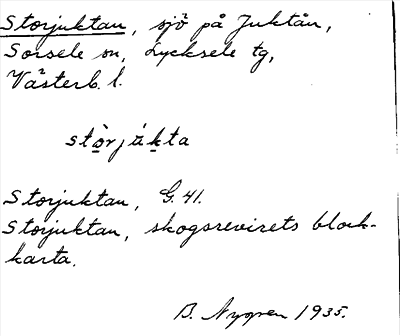 Storjuktan, sjö på Juktån,
Sorsele sn, Lycksele tg,
Västerb. l.
stòrjúkta
Storjuktan, G. 41.
Storjuktan, skogsrevirets block-
karta.
B. Nygren 1935.